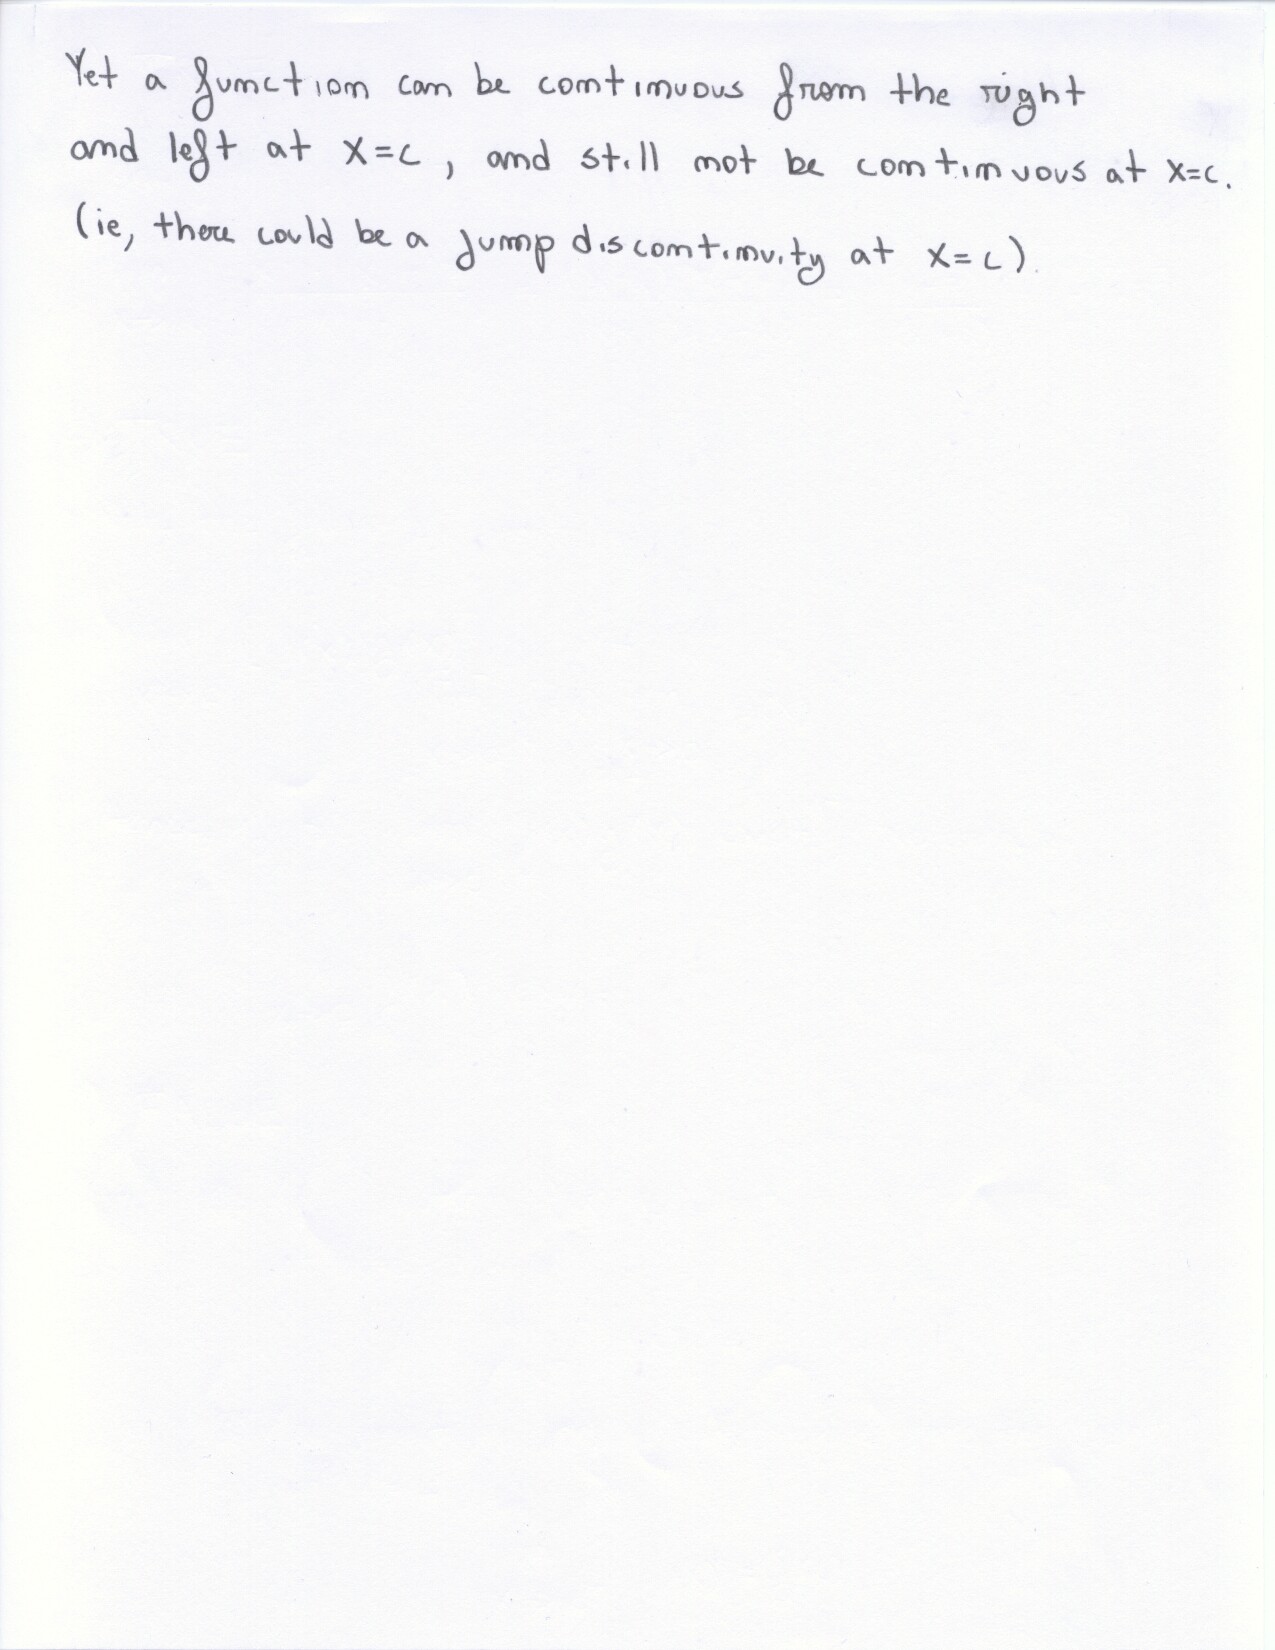 Yet a function can be continuous from the right
and left at x=c, and still not be continuous at x=c.
(ie, there could be a jump discontinuity at x=c).